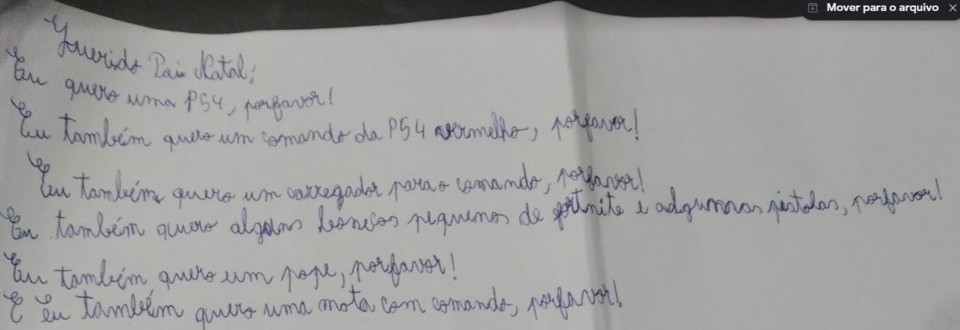 Mover para o arquivo
Querido Pai Natal;
Eu quero uma PS4, porfavor!
Eu também quero um comando da PS4 vermelho, porfavor!
Eu também quero um carregador para o comando, porfavor!
Eu também quero alguns boneços pequenos de fortnite e adgumas pistolas, porfavor!
Eu também quero um pope, porfavor!
E Eu também quero uma mota com comando, porfavor!